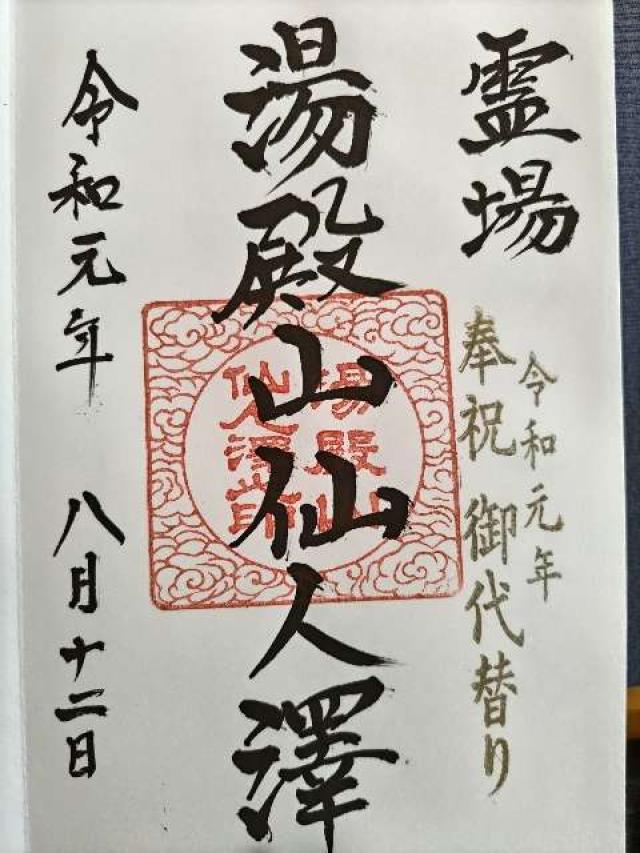 霊場
令和元年
奉祝 御代替り
湯殿山仙人澤
湯殿山
仙人澤
令和元年 八月十二日